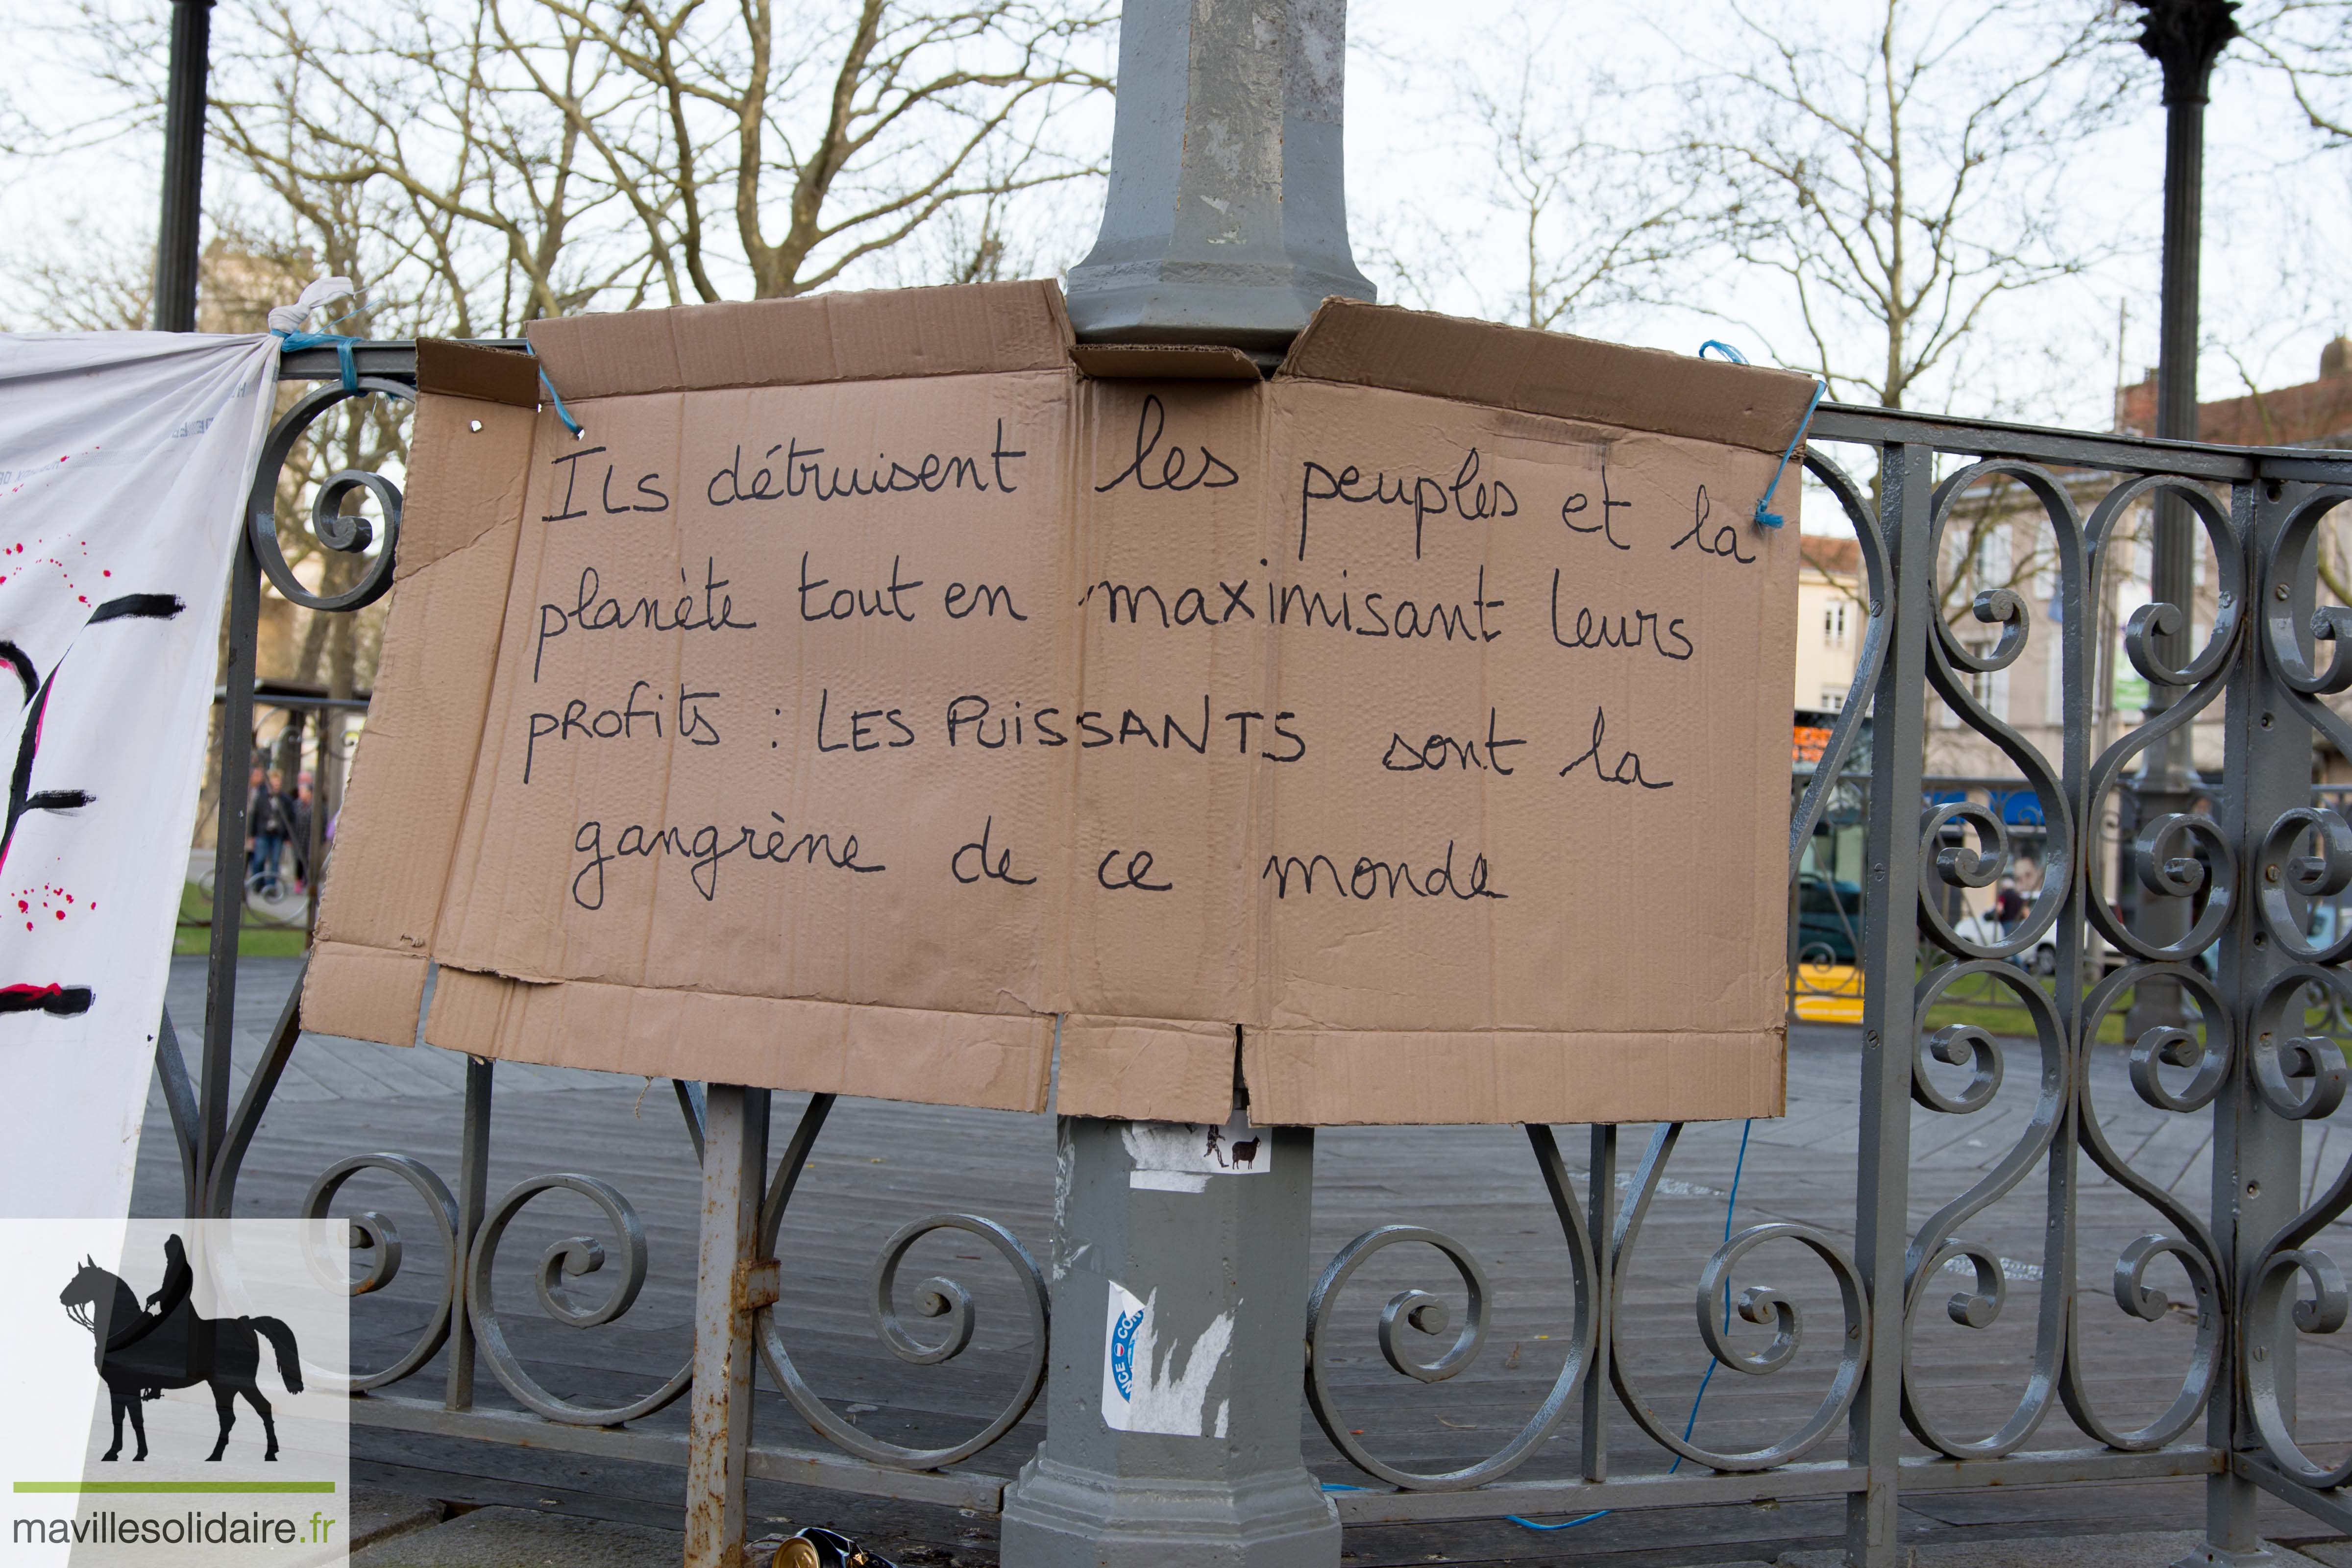 Ils détruisent les peuples et la
planète tout en maximisant leurs
profits : LES PUISSANTS sont la
gangrène de ce monde
NCE CO
mavillesolidaire.fr